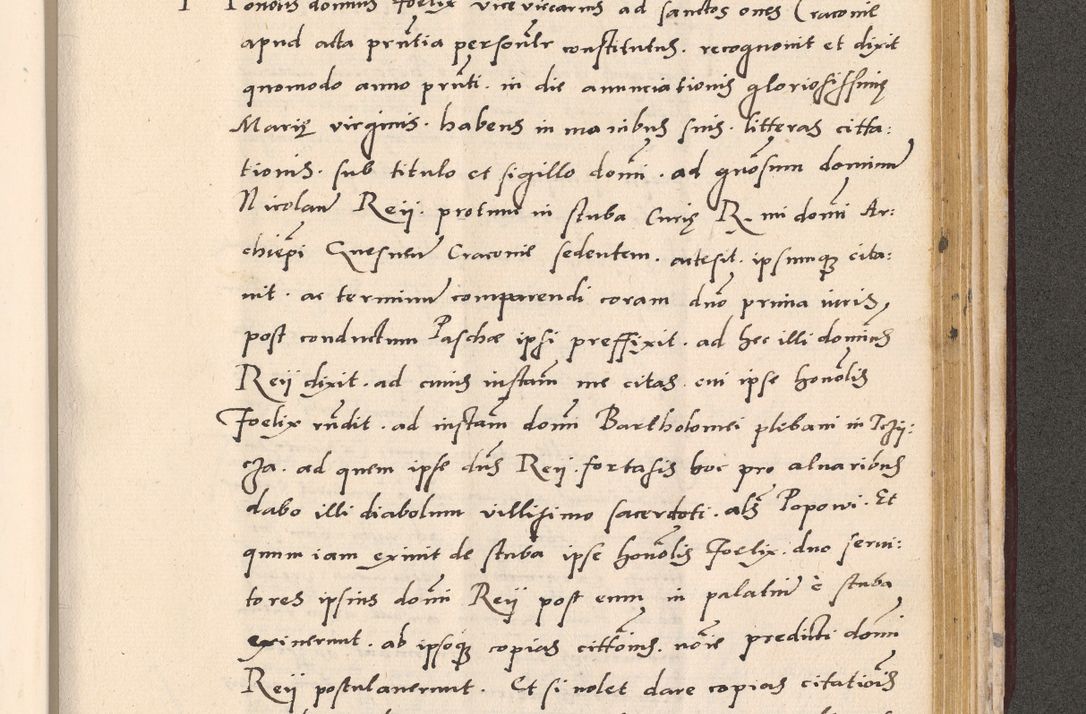 dominus Foelix vice vicearius ad sanctos oms Cracovie
apud acta prn̄tia personlr constitutus. recognovit et dixit
quomodo anno prn̄ti. in die anunciationis gloriosissimę
Marię virginis. habens in manibus suis. litteras citta:
tionis. sub titulo et sigillo domī. ad quōsum dominum
Nicolaum Reij. protunc in stuba Curię R. mi domī Ar:
chiēpi Gnesnem Cracovie sedentem. accessit. ipsumque cita:
vit. ac terminum comparendi coram dn̄o prima iuris,
post conductum Paschae ipsi preffixit. ad hec illi dominus
Reij dixit. ad cuius instam̄ me citas. cui ipse honōlis
Foelix rn̄dit. ad instam̄ domī Bartholomei plebani in
ad quem ipse dn̄s Reij. fortasis hoc pro alvaribus
dabo illi diabolum villissimo sacerdoti. als̄ Popowi. Et
quum iam exivit de stuba ipse honōlis Foelix. duo servi:
tores ipsius domī Reij post eum in palatium è stuba,
exiverunt. ab ipsoque copias cittōnis. nōie predicti domī
Reij postulaverunt. Et si nolet dare copias citatiōis